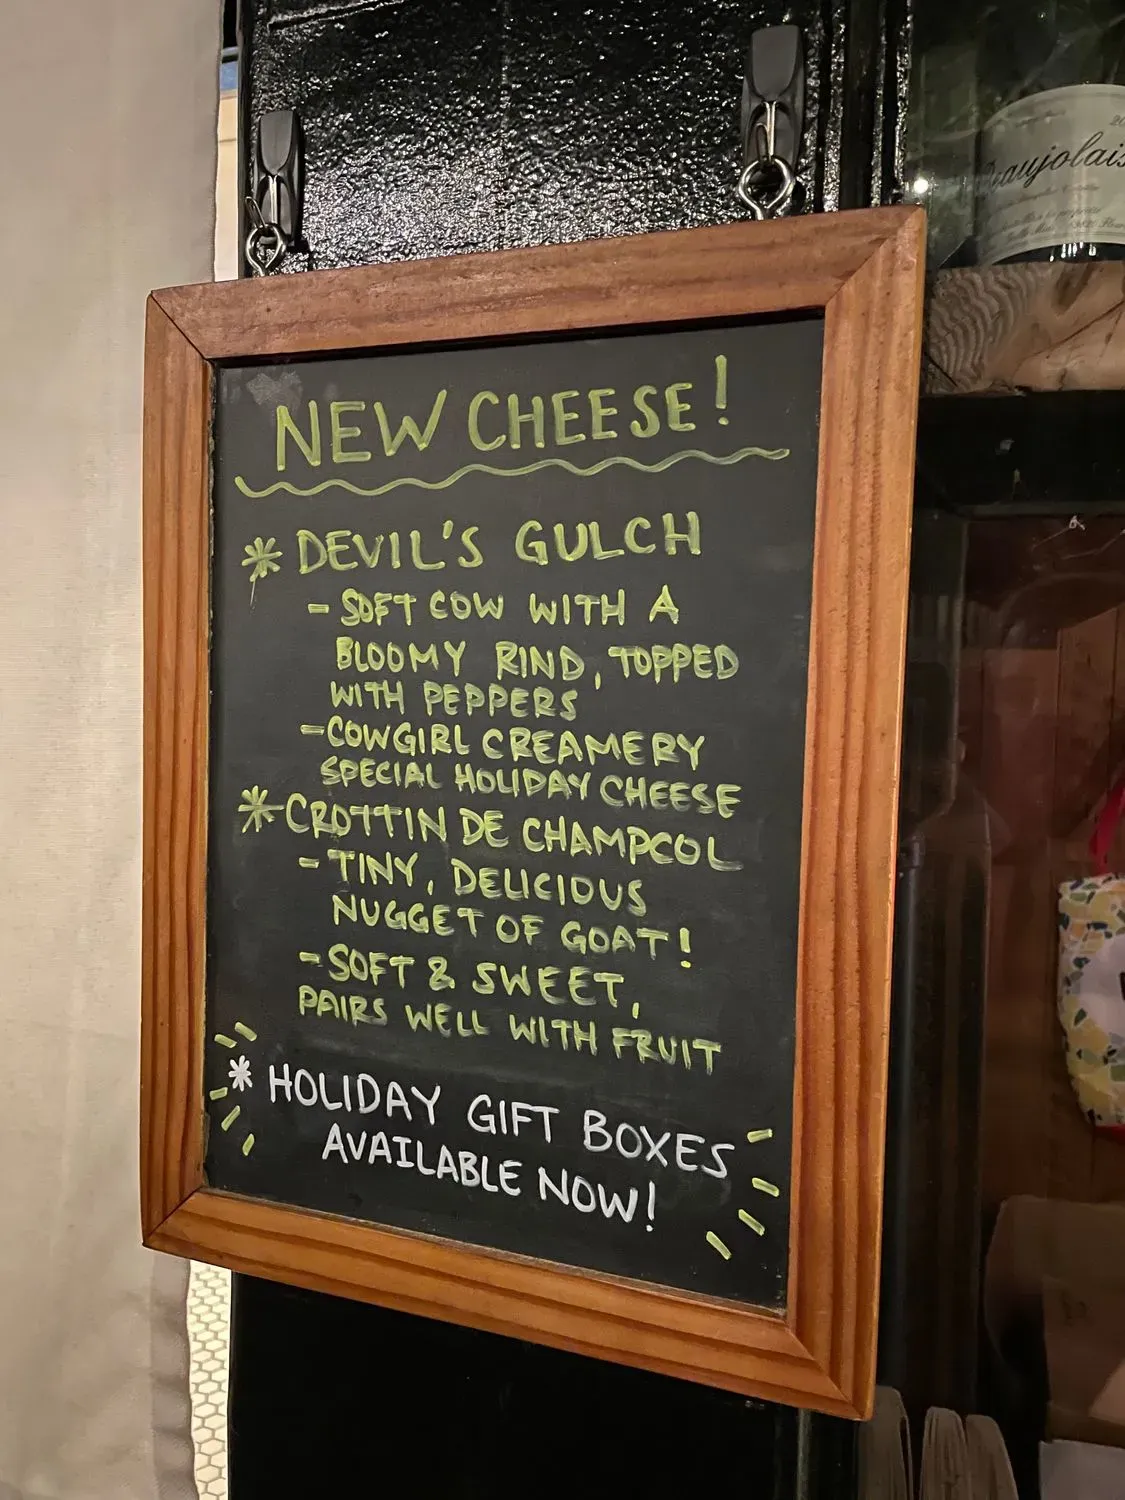 NEW CHEESE!
* DEVIL'S GULCH
- SOFT COW WITH A
BLOOMY RIND, TOPPED
WITH PEPPERS
- COWGIRL CREAMERY
SPECIAL HOLIDAY CHEESE
* CROTTIN DE CHAMPCOL
- TINY, DELICIOUS
NUGGET OF GOAT!
- SOFT & SWEET,
PAIRS WELL WITH FRUIT
* HOLIDAY GIFT BOXES
AVAILABLE NOW!
Beaujolais